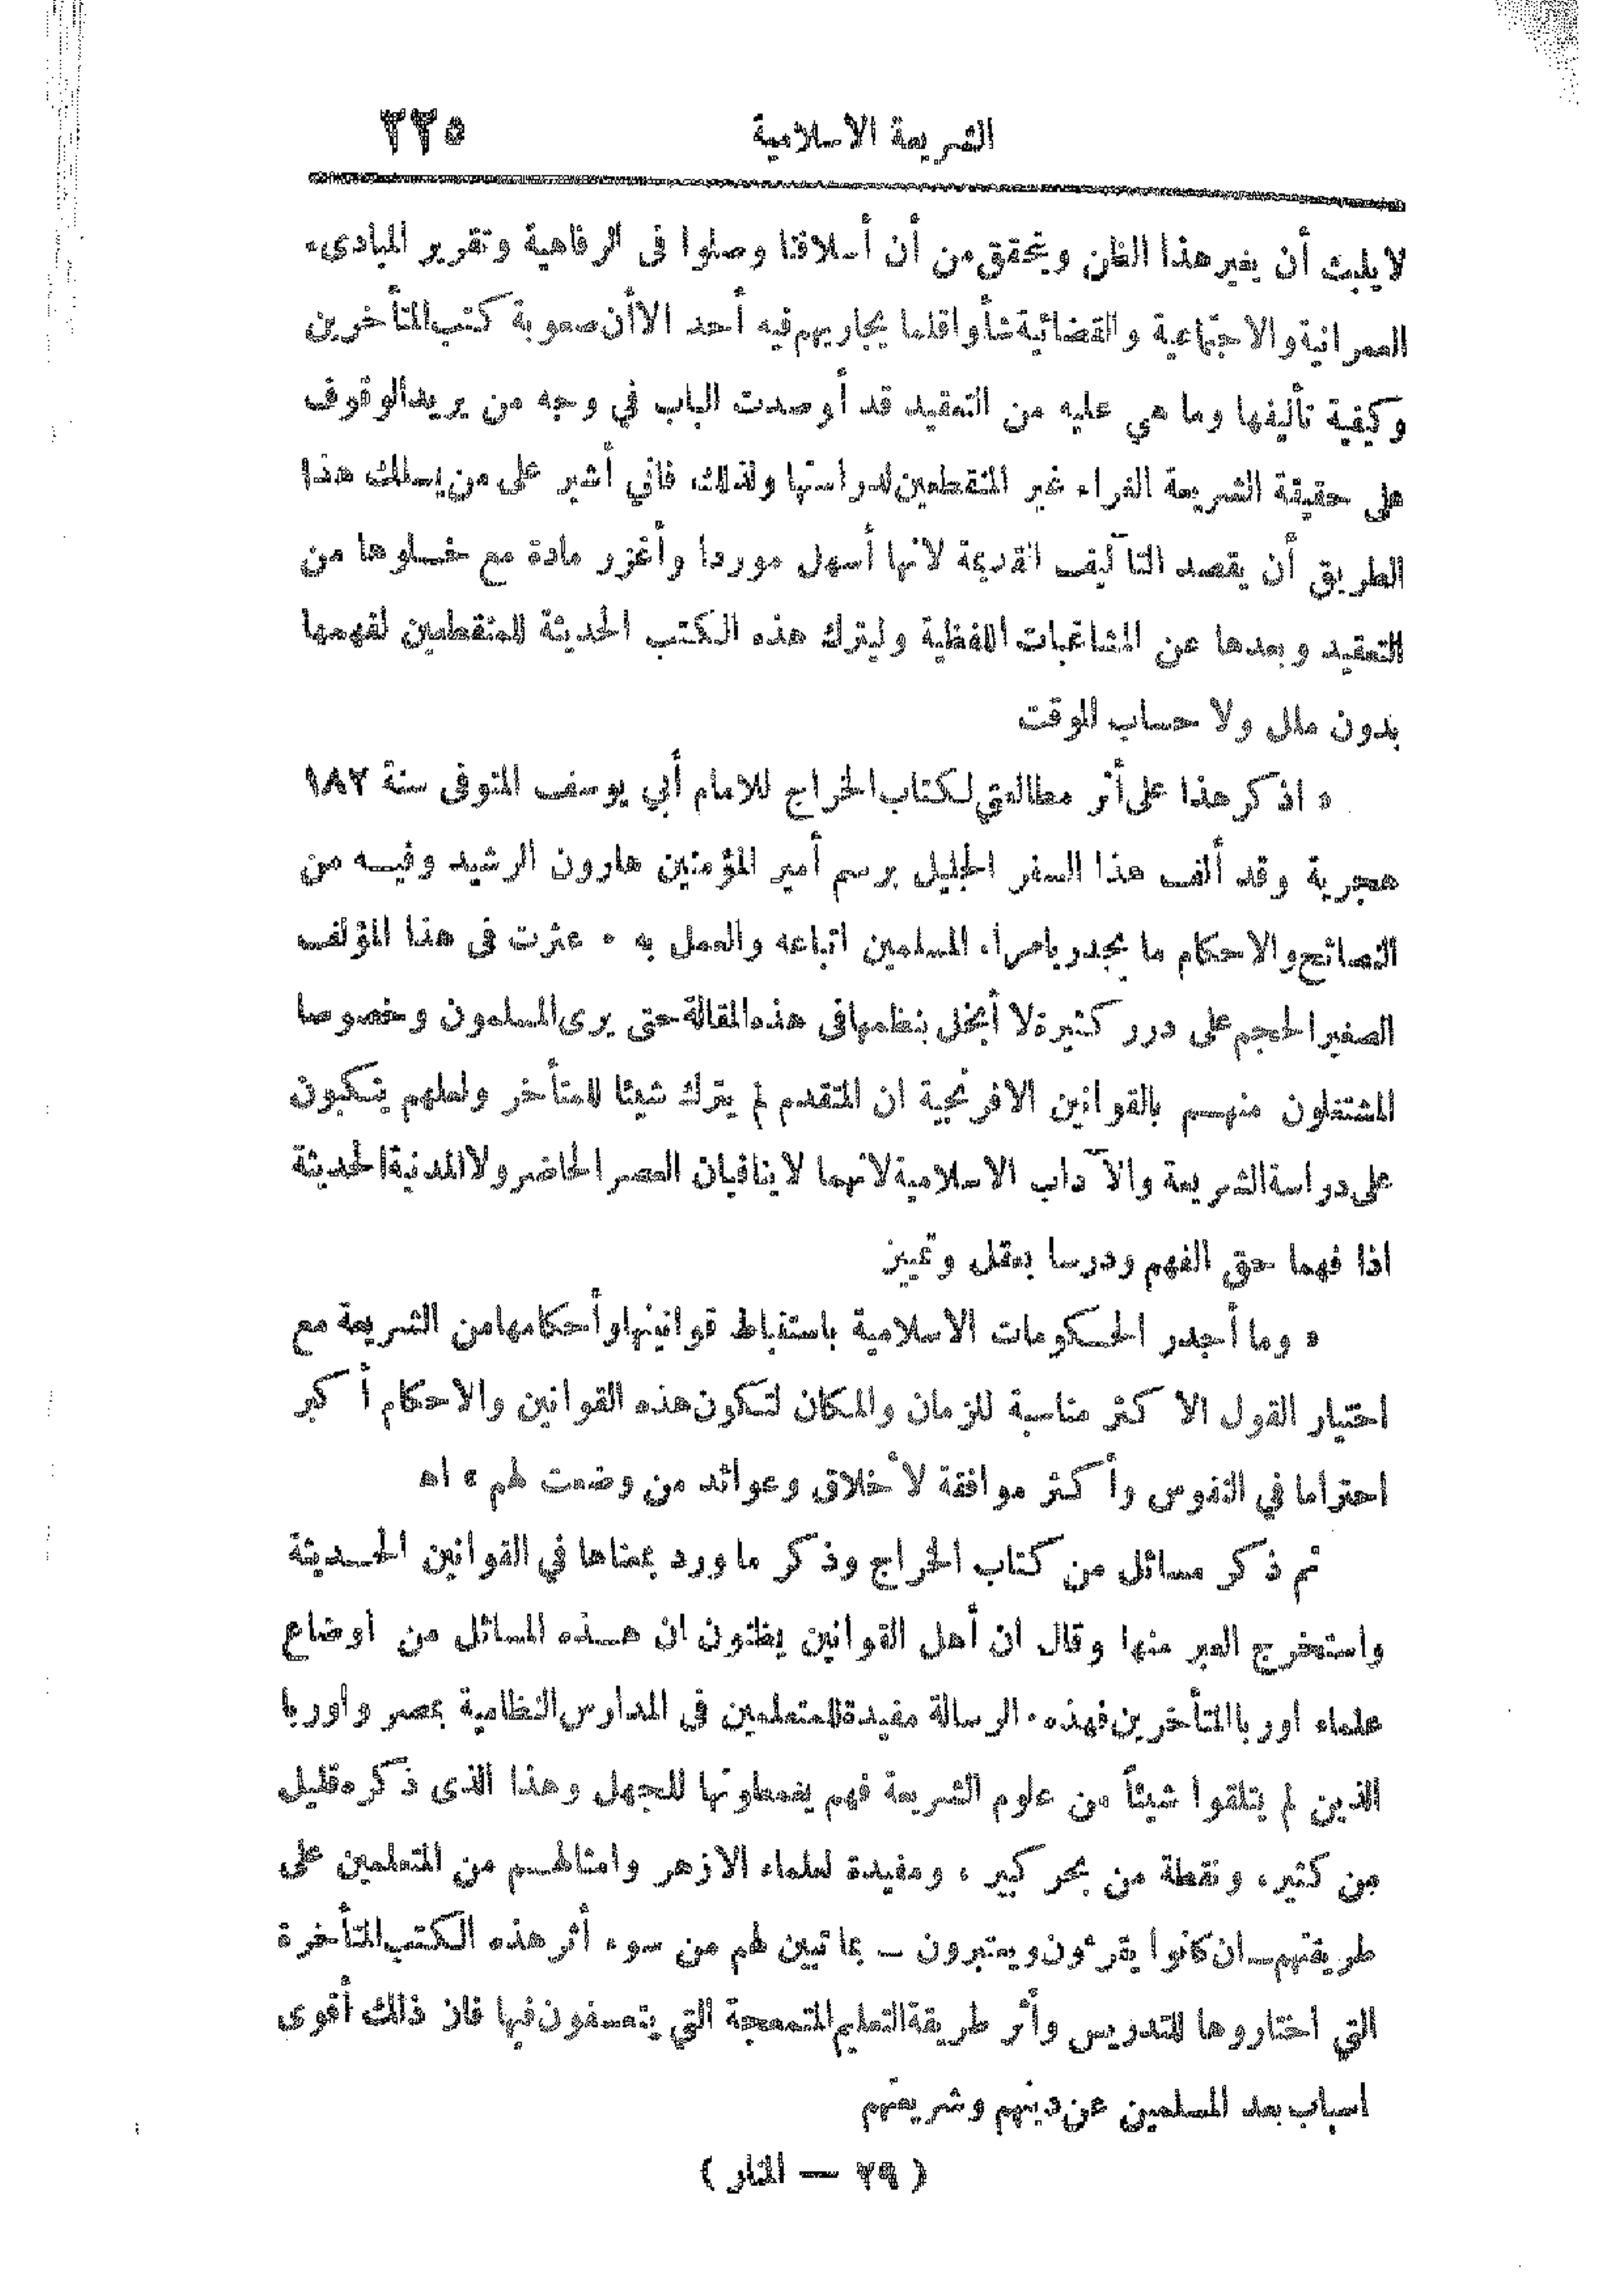 الشريعة الاسلامية ٢٢٥
لا يلبث أن يغير هذا الظن ويتحقق من أن أسلافنا وصلوا فى الرفاهية وتقرير المبادىء
العمرانية والاجتماعية والقضائية شأوا قلما يجاريهم فيه أحد الا أن صعوبة كتب المتأخرين
وكيفية تأليفها وما هي عليه من التعقيد قد أوصدت الباب في وجه من يريد الوقوف
على حقيقة الشريعة الغراء غير المنقطعين لدراستها ولذلك فاني أشير على من يسلك هذا
الطريق أن يقصد التآليف القديمة لانها أسهل موردا وأغزر مادة مع خلوها من
التعقيد وبعدها عن المشاغبات اللفظية وليترك هذه الكتب الحديثة للمنقطعين لفهمها
بدون ملل ولا حساب للوقت
« اذكر هذا على أثر مطالعتي لكتاب الخراج للامام أبي يوسف المتوفى سنة ١٨٢
هجرية وقد ألف هذا السفر الجليل برسم أمير المؤمنين هارون الرشيد وفيه من
النصائح والاحكام ما يجدر بامراء المسلمين اتباعه والعمل به . عثرت فى هذا المؤلف
الصغير الحجم على درر كثيرة لا أبخل بنظمها فى هذه المقالة حتى يرى المسلمون وخصوصا
المشتغلون منهم بالقوانين الافرنجية ان المتقدم لم يترك شيئا للمتأخر ولعلهم ينكبون
على دراسة الشريعة والآداب الاسلامية لانهما لا ينافيان العصر الحاضر ولا المدنية الحديثة
اذا فهما حق الفهم ودرسا بعقل وتمييز
« وما أجدر الحكومات الاسلامية باستنباط قوانينها وأحكامها من الشريعة مع
اختيار القول الاكثر مناسبة للزمان والمكان لتكون هذه القوانين والاحكام أكبر
احتراما في النفوس وأكثر موافقة لأخلاق وعوائد من وضعت لهم » اه
ثم ذكر مسائل من كتاب الخراج وذكر ما ورد بمعناها في القوانين الحديثة
واستخرج العبر منها وقال ان أهل القوانين يظنون ان هذه المسائل من اوضاع
علماء اوربا المتأخرين فهذه الرسالة مفيدة للمتعلمين فى المدارس النظامية بمصر واوربا
الذين لم يتلقوا شيئاً من علوم الشريعة فهم يغمطونها للجهل وهذا الذى ذكره قليل
من كثير، ونقطة من بحر كبير ، ومفيدة لعلماء الازهر وامثالهم من المتعلمين على
طريقتهم ــ ان كانوا يقرءون ويعتبرون ــ بما تبين لهم من سوء أثر هذه الكتب المتأخرة
التي اختاروها للتدريس وأثر طريقة التعليم المتمعجة التي يتعسفون فيها فان ذلك أقوى
اسباب بعد المسلمين عن دينهم وشريعتهم
( ٢٩ — المنار )